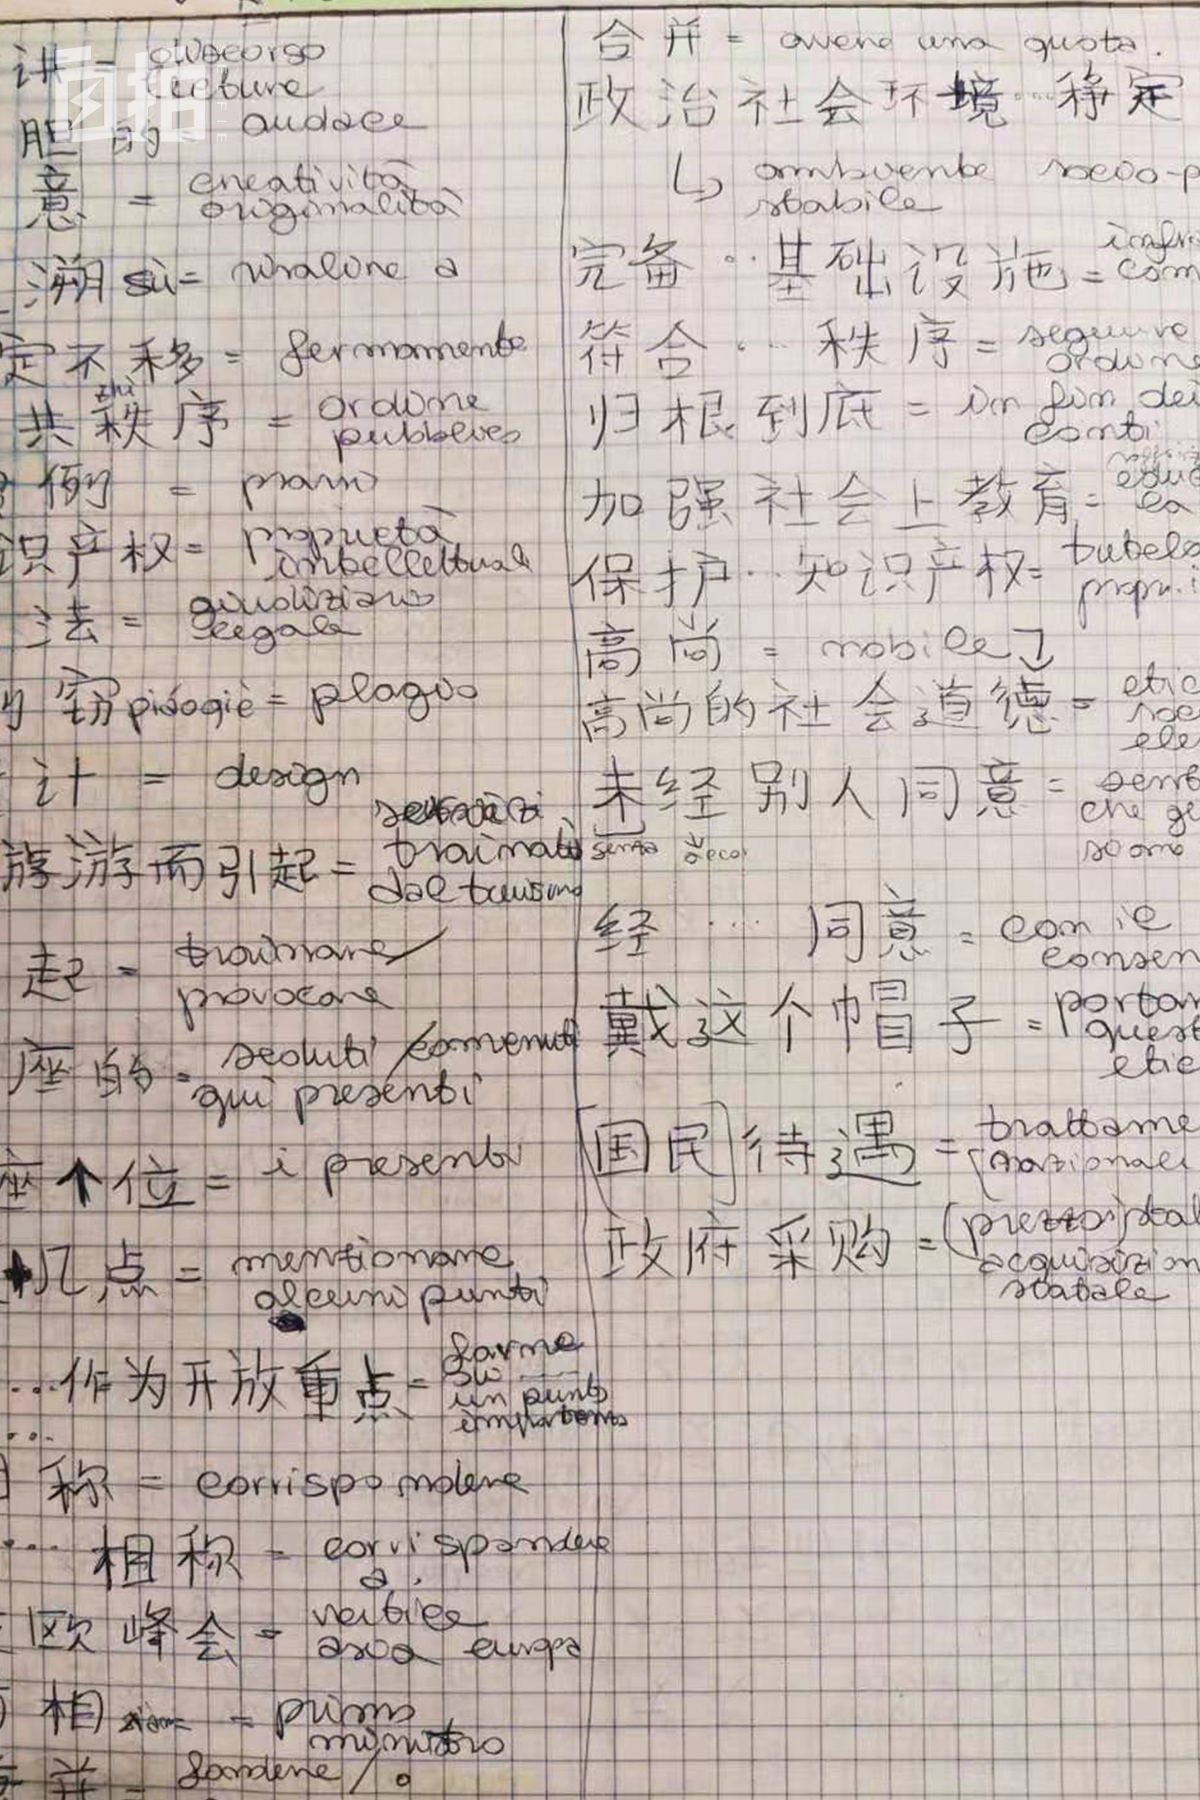 讲 = discorso
lecture
胆的 audace
意 = creatività
originalità
溯 sù = risalire a
定不移 = fermamente
zhì
共秩序 = ordine
pubblico
例 = prassi
识产权 = proprietà
intellettuale
法 = giudiziario
legale
窃 piáoqiè = plagio
计 = design
servizi
游而引起 = trainati
dal turismo
起 = trainare/
provocare
座的 = seduti/convenuti
qui presenti
座个位 = i presenti
几点 = menzionare
alcuni punti
...作为开放重点 = farne
un punto
...
称 = corrispondere
... 相称 = corrispondere
a.
欧峰会 = vertice
asia europa
相 = primo
ministro
并 = fondere/
合并 = avere una quota.
政治社会环境...稳定
↳ ambiente socio-p
stabile
完备...基础设施 = infr
com
符合...秩序 = seguire
ordine
归根到底 = in fin dei
conti
加强社会上教育 = educ
la
保护...知识产权 = tutela
propri
高尚 = nobile
高尚的社会道德 = etic
soc
ele
未经别人同意 = senz
che gl
siano
senza
经...同意 = con il
consen
戴这个帽子 = portar
quest
etic
[国民]待遇 = trattame
(nazionale
政府采购 = (prezzo) stat
acquisizion
statale